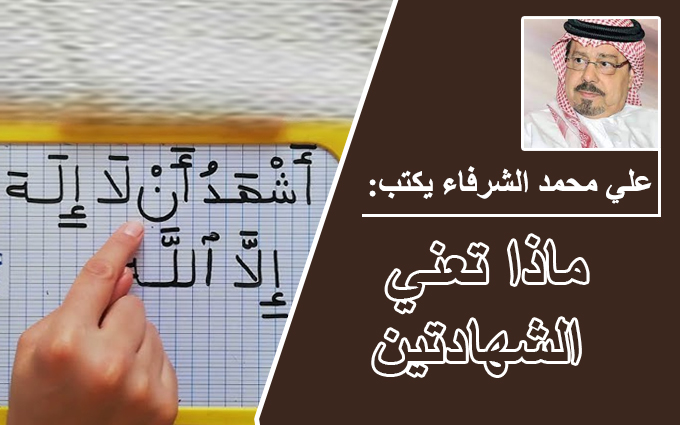 علي محمد الشرفاء يكتب:
ماذا تعني
الشهادتين
أَشْهَدُ أَنْ لَا إِلَهَ
إِلَّا ٱللَّه